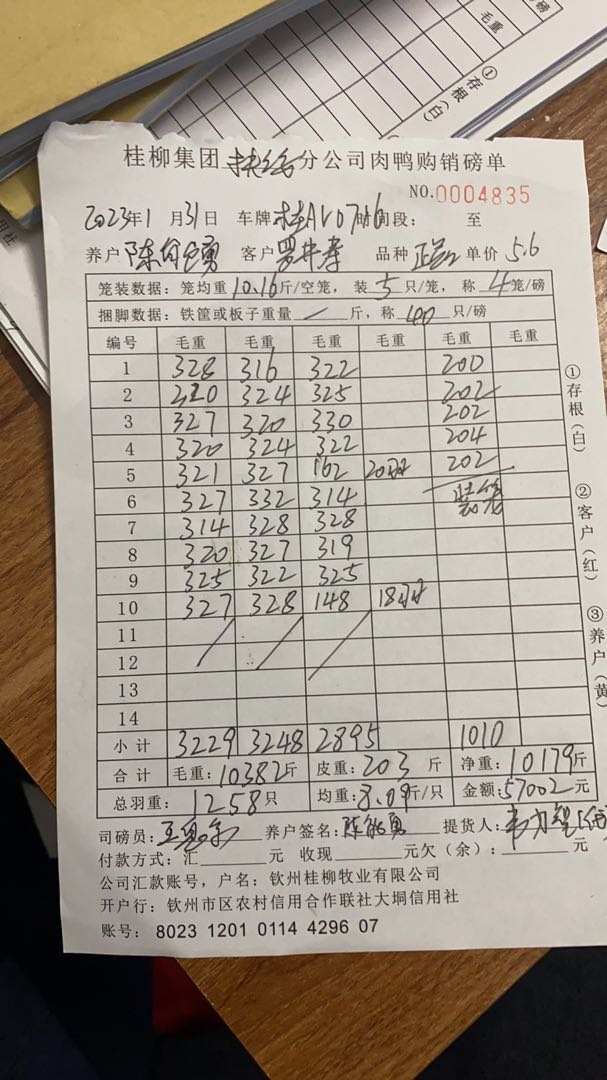 毛重
磅
①存根(白)
桂柳集团 扶绥 分公司肉鸭购销磅单
NO.0004835
2023年1月31日 车牌 桂AV07 时间段: 至
养户 陈 勇 客户 罗 寿 品种 正品 单价 5.6
笼装数据:笼均重10.16斤/空笼,装5只/笼,称4笼/磅
捆脚数据:铁筐或板子重量 / 斤,称400只/磅
编号 毛重 毛重 毛重 毛重 毛重 毛重
1 328 316 322 200
2 320 324 325 202
3 327 320 330 202
4 320 324 322 204
5 321 327 162 20只 202
6 327 332 314 装笼
7 314 328 328
8 320 327 319
9 325 322 325
10 327 328 148 18只
11
12
13
14
小计 3229 3248 2895 1010
合计 毛重:10382斤 皮重:203斤 净重:10179斤
总羽重: 1258只 均重:8.09斤/只 金额:57002元
司磅员: 养户签名:陈 勇 提货人:
付款方式:汇 元 收现 元欠(余): 元
公司汇款账号,户名:钦州桂柳牧业有限公司
开户行:钦州市区农村信用合作联社大垌信用社
账号:8023 1201 0114 4296 07
①存根(白)
②客户(红)
③养户(黄)